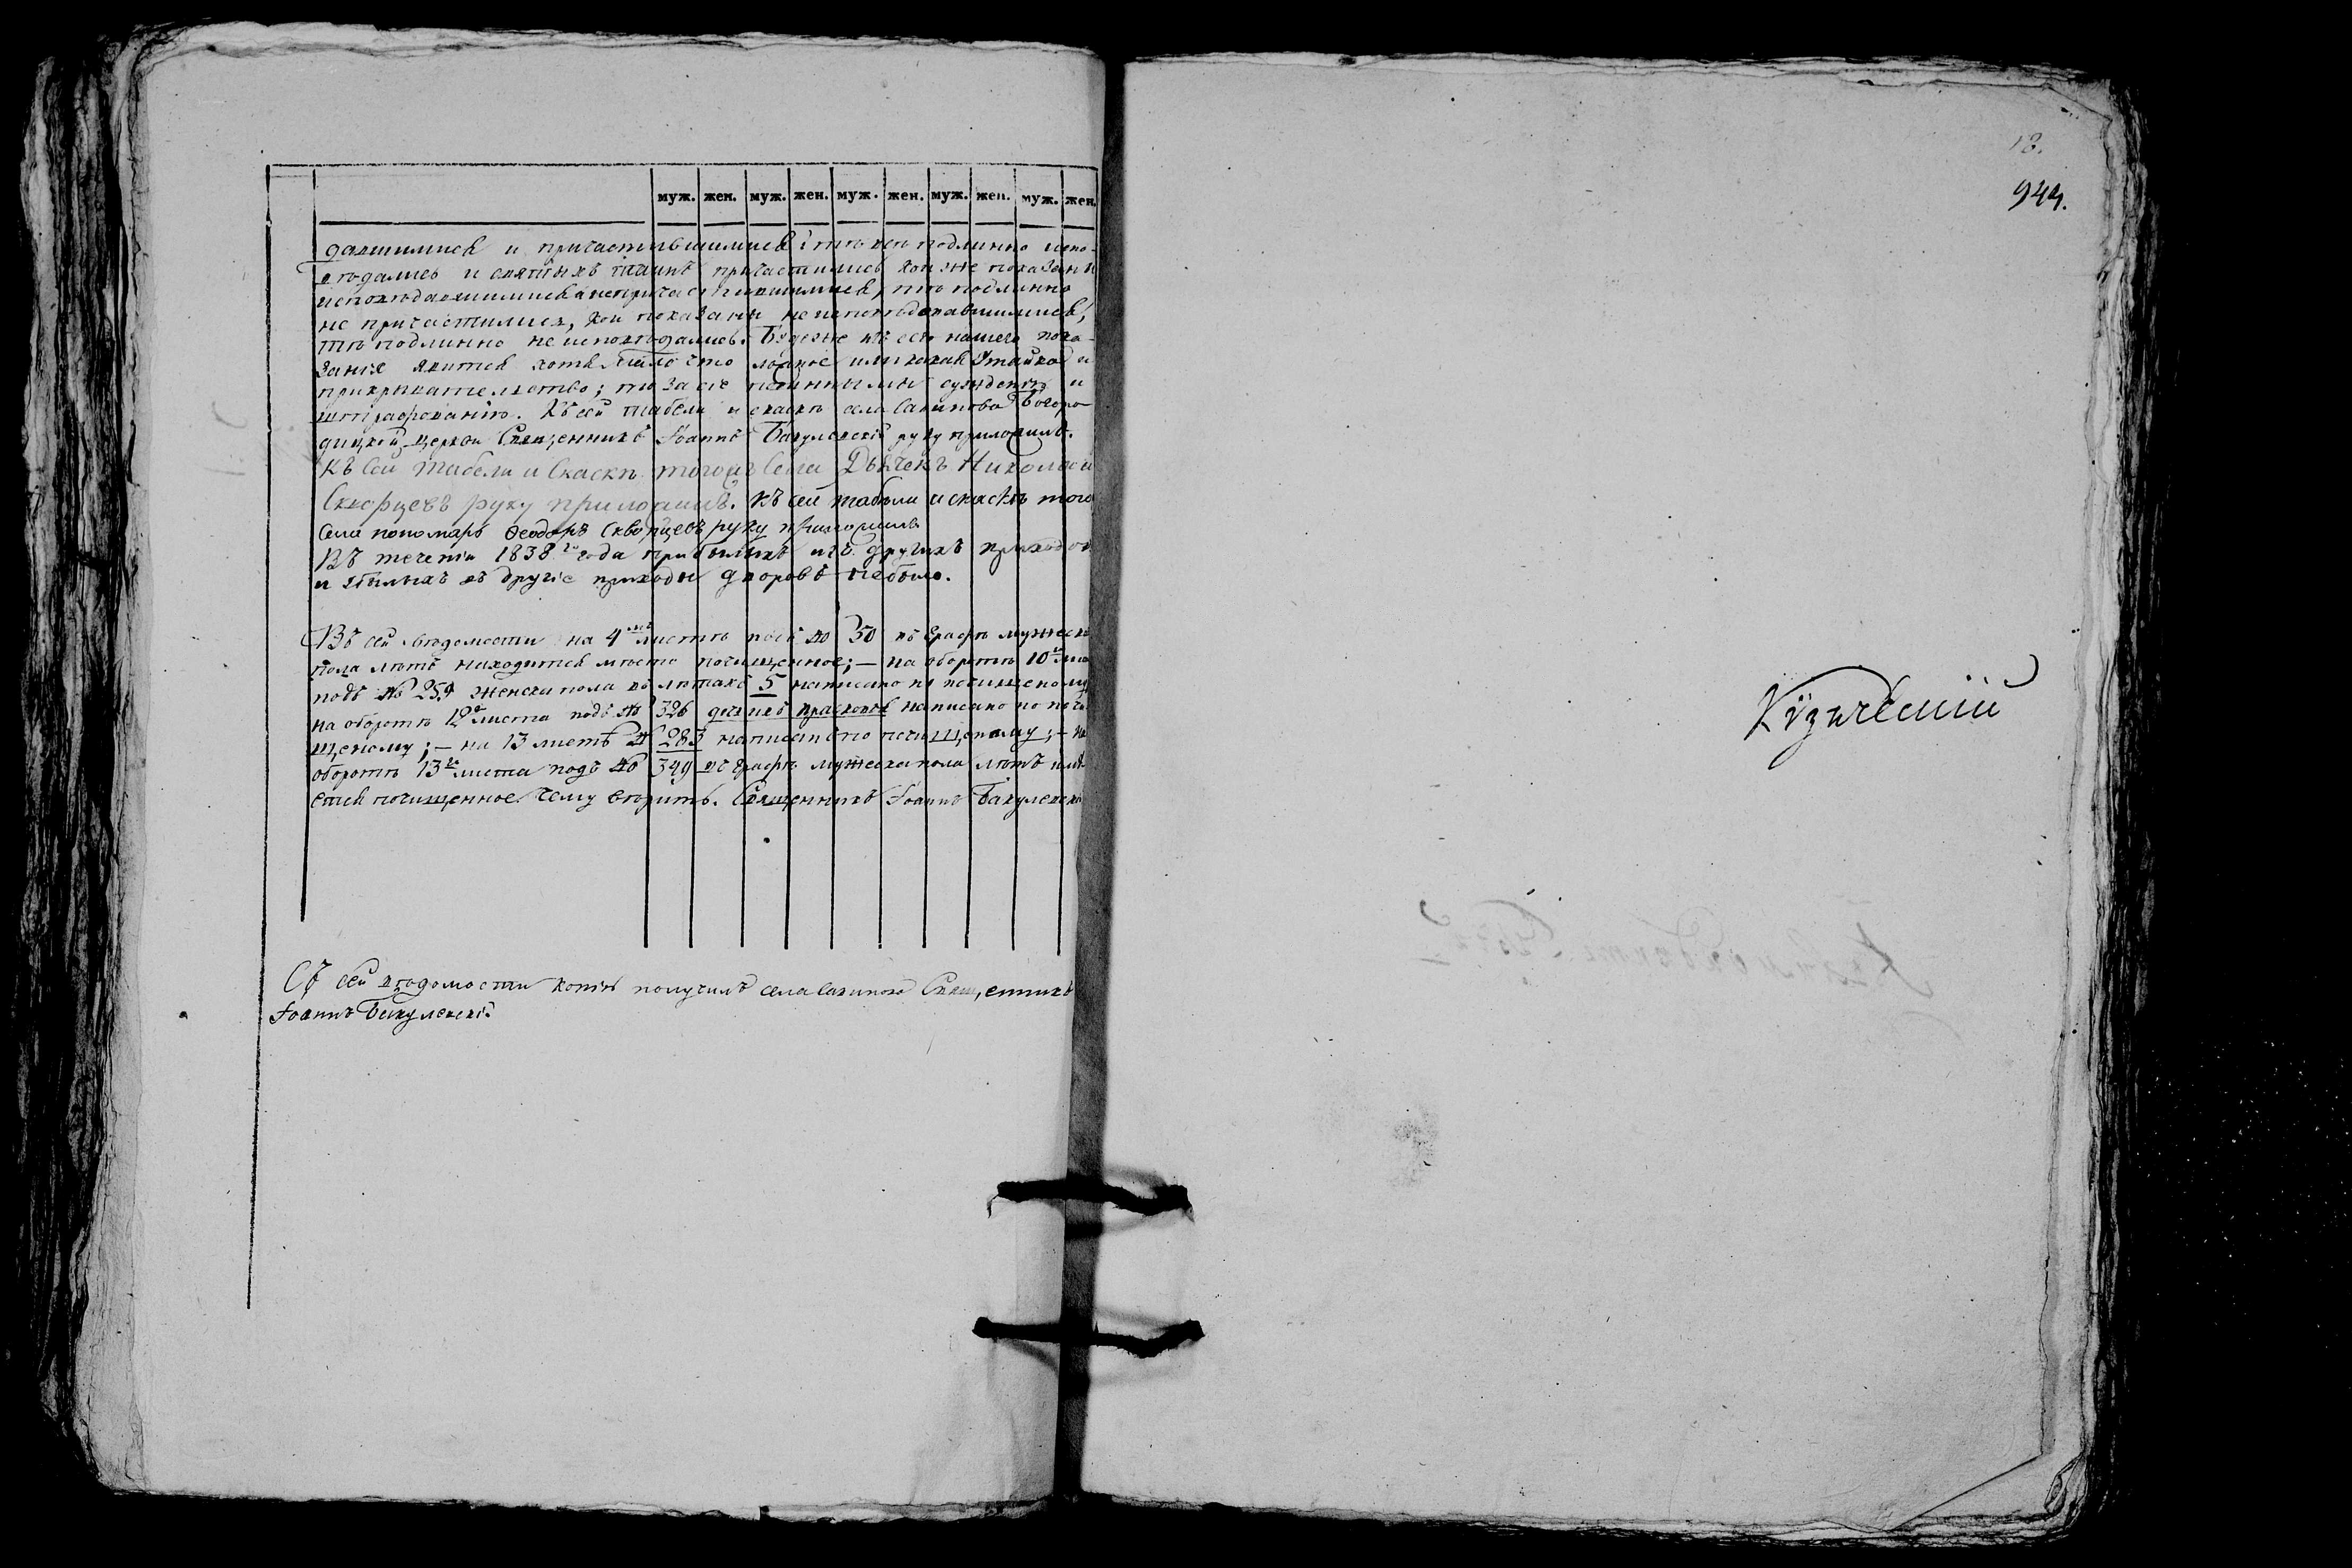 муж. жен. муж. жен. муж. жен. муж. жен. муж. жен.
давшимися и причастившимися: тѣ всѣ подлинно испо-
вѣдались и святыхъ таинъ причастились, кои же показаны
исповѣдавшимися а непричастившимися, тѣ подлинно
не причастились, кои показаны не исповѣдовавшимися,
тѣ подлинно не исповѣдались. Будеже въ семъ нашемъ пока-
заніе явится хотя мало что ложное или какая утайка и
прикрывательство; то за сіе повинны мы сужденію и
штрафованію. Къ сей табели и скаскѣ села Сакипова Богоро-
дицкой церкви Священникъ Іоаннъ Бакулевскій руку приложилъ.
Къ Сей табели и Скаскѣ тогожъ Села Дьячекъ Николай
Скворцевъ руку приложилъ. Къ сей табели и скаскѣ того
села пономарь Ѳеодоръ Скворцевъ руку приложилъ
Въ теченіи 1838го года прибылыхъ изъ другихъ приходовъ
и убылыхъ въ другіе приходы дворовъ небыло.
Въ сей вѣдомости на 4мъ листѣ подъ № 30 въ графѣ мужеска
пола лѣтъ находится мѣсто почищенное; — на оборотѣ 10го лис
подъ № 259 женска пола въ лѣтахъ 5 написано по почищеному
на оборотѣ 12го листа подъ № 326 написано по почи
щеному; — на 13 листѣ № 283 написано по почищеному; — на
оборотѣ 13го листа подъ № 349 въ графѣ мужеска пола лѣтъ имѣ
ется почищенное. Чему вѣрить. Священникъ Іоаннъ Бакулевскі
Съ сей вѣдомости копію получилъ села Сакипова Священникъ
Іоаннъ Бакулевскій
18.
944.